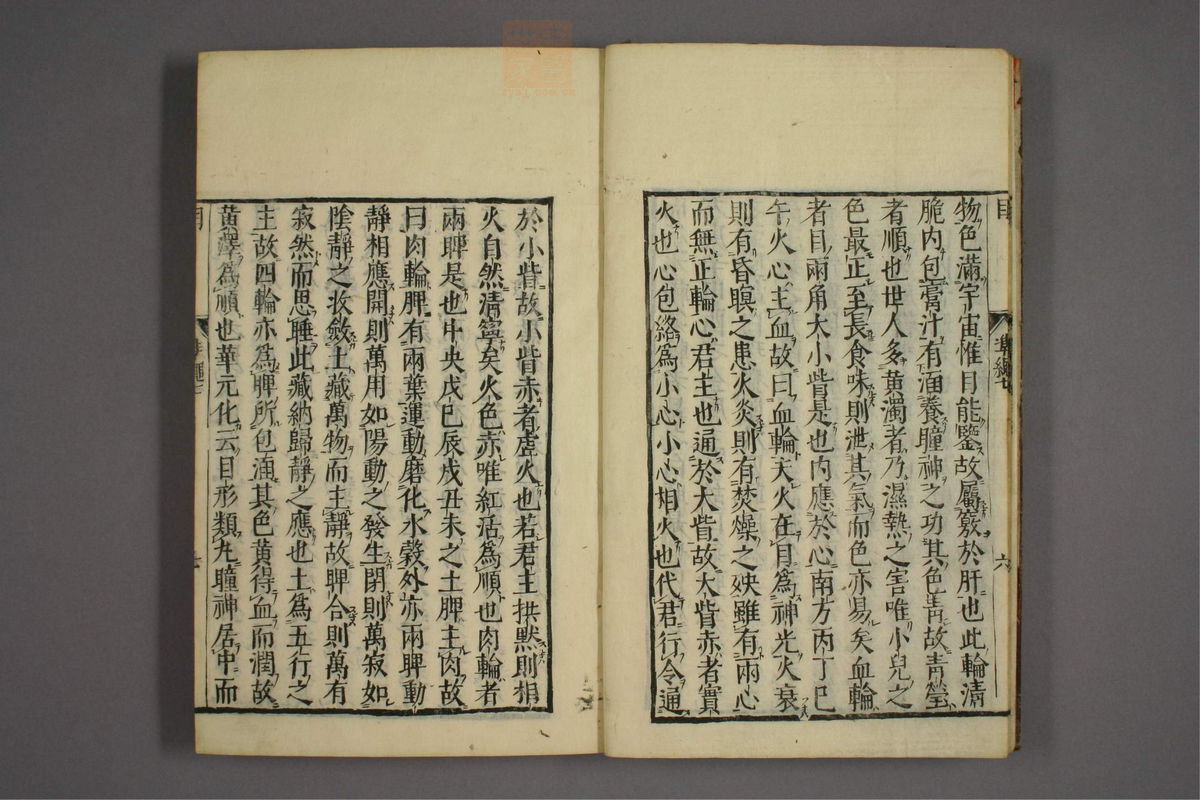 物色滿宇宙惟目能鑒故屬竅於肝也此輪清
脆內包膏汁有涵養瞳神之功其色靑故靑瑩
者順也世人多黃濁者乃濕熱之害唯小兒之
色最正至長食味則泄其氣而色亦易矣血輪
者目兩角大小眥是也內應於心南方丙丁巳
午火心主血故曰血輪夫火在目爲神光火衰
則有昏瞑之患火炎則有焚燥之殃雖有兩心
而無正輪心君主也通於大眥故大眥赤者實
火也心包絡爲小心小心相火也代君行令通
於小眥故小眥赤者虛火也若君主拱默則相
火自然清寧矣火色赤唯紅活爲順也肉輪者
兩脾是也中央戊巳辰戌丑未之土脾主肉故
曰肉輪脾有兩葉運動磨化水穀外亦兩脾動
靜相應開則萬用如陽動之發生閉則萬寂如
陰靜之收斂土藏萬物而主靜故脾合則萬有
寂然而思睡此藏納歸靜之應也土爲五行之
主故四輪亦爲脾所包涵其色黃得血而潤故
黃澤爲順也華元化云目形類丸瞳神居中而
目
準繩七
六